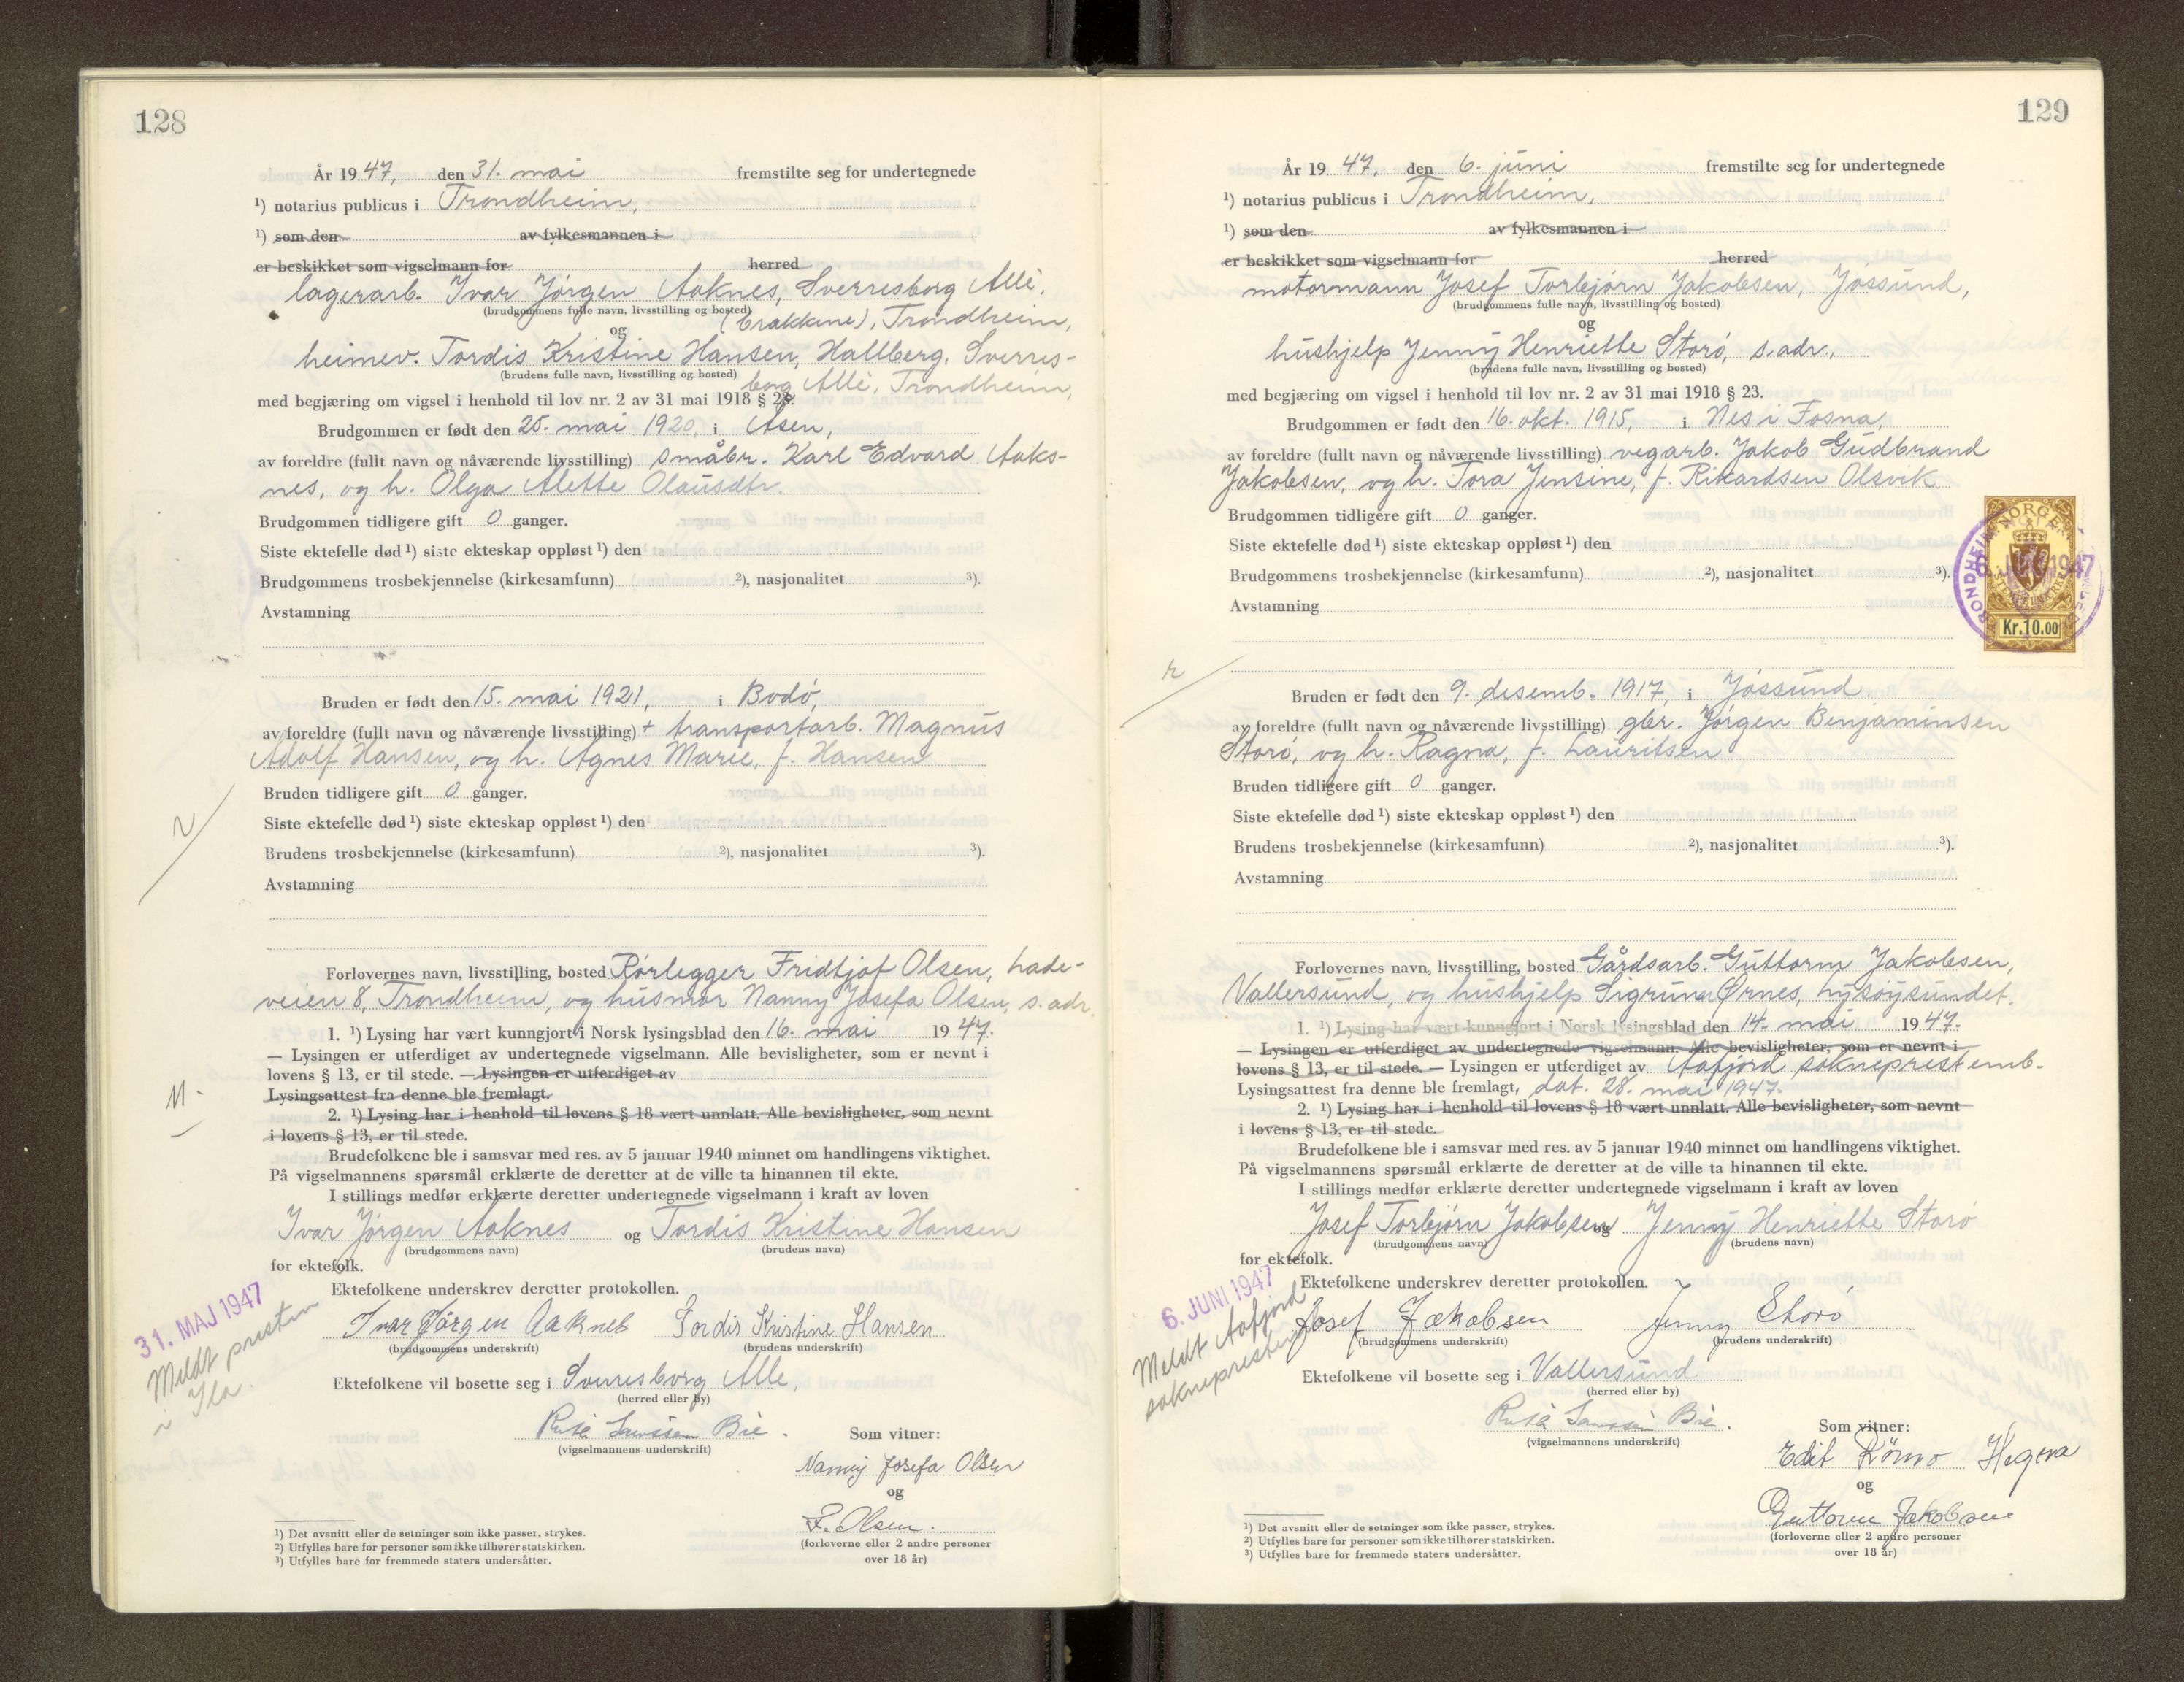 128
År 1947, den 31. mai fremstilte seg for undertegnede
¹) notarius publicus i Trondheim,
¹) som den av fylkesmannen i
er beskikket som vigselmann for herred
lagerarb. Ivar Jörgen Aaknes, Sverresborg Allè,
(brudgommens fulle navn, livsstilling og bosted)
(brakkene), Trondheim,
og
heimev. Tordis Kristine Hansen, Hallberg, Sverres-
(brudens fulle navn, livsstilling og bosted)
borg Allè, Trondheim,
med begjæring om vigsel i henhold til lov nr. 2 av 31 mai 1918 § 23.
Brudgommen er født den 25. mai 1920, i Åsen,
av foreldre (fullt navn og nåværende livsstilling) småbr. Karl Edvard Aaks-
nes, og h. Olga Alette Olausdtr.
Brudgommen tidligere gift 0 ganger.
Siste ektefelle død ¹) siste ekteskap oppløst ¹) den
Brudgommens trosbekjennelse (kirkesamfunn) ²), nasjonalitet ³).
Avstamning
Bruden er født den 15. mai 1921, i Bodö,
av foreldre (fullt navn og nåværende livsstilling) + transportarb. Magnus
Adolf Hansen, og h. Agnes Marie, f. Hansen
Bruden tidligere gift 0 ganger.
Siste ektefelle død ¹) siste ekteskap oppløst ¹) den
Brudens trosbekjennelse (kirkesamfunn) ²), nasjonalitet ³).
Avstamning
Forlovernes navn, livsstilling, bosted Rörlegger Fridtjof Olsen, Lade-
veien 8, Trondheim, og husmor Nanny Josefa Olsen, s. adr.
1. ¹) Lysing har vært kunngjort i Norsk lysingsblad den 16. mai 1947.
— Lysingen er utferdiget av undertegnede vigselmann. Alle bevisligheter, som er nevnt i
lovens § 13, er til stede. — Lysingen er utferdiget av
Lysingsattest fra denne ble fremlagt.
2. ¹) Lysing har i henhold til lovens § 18 vært unnlatt. Alle bevisligheter, som nevnt
i lovens § 13, er til stede.
Brudefolkene ble i samsvar med res. av 5 januar 1940 minnet om handlingens viktighet.
På vigselmannens spørsmål erklærte de deretter at de ville ta hinannen til ekte.
I stillings medfør erklærte deretter undertegnede vigselmann i kraft av loven
Ivar Jörgen Aaknes og Tordis Kristine Hansen
(brudgommens navn) (brudens navn)
for ektefolk.
Ektefolkene underskrev deretter protokollen.
31. MAJ 1947
Meldt presten
i Ila.
Ivar Jørgen Aaknes Tordis Kristine Hansen
(brudgommens underskrift) (brudens underskrift)
Ektefolkene vil bosette seg i Sverresborg Alle,
(herred eller by)
(vigselmannens underskrift)
Som vitner:
Nanny Josefa Olsen
og
F. Olsen.
(forloverne eller 2 andre personer
over 18 år)
¹) Det avsnitt eller de setninger som ikke passer, strykes.
²) Utfylles bare for personer som ikke tilhører statskirken.
³) Utfylles bare for fremmede staters undersåtter.
129
År 1947, den 6. juni fremstilte seg for undertegnede
¹) notarius publicus i Trondheim,
¹) som den av fylkesmannen i
er beskikket som vigselmann for herred
motormann Josef Torbjörn Jakobsen, Jössund,
(brudgommens fulle navn, livsstilling og bosted)
og
hushjelp Jenny Henriette Storö, s. adr.,
(brudens fulle navn, livsstilling og bosted)
med begjæring om vigsel i henhold til lov nr. 2 av 31 mai 1918 § 23.
Brudgommen er født den 16. okt. 1915, i Nes i Fosna,
av foreldre (fullt navn og nåværende livsstilling) vegarb. Jakob Gudbrand
Jakobsen, og h. Tora Jensine, f. Rikardsen Olsvik
Brudgommen tidligere gift 0 ganger.
Siste ektefelle død ¹) siste ekteskap oppløst ¹) den
Brudgommens trosbekjennelse (kirkesamfunn) ²), nasjonalitet ³).
Avstamning
NORGE
Kr.10.00
Bruden er født den 9. desemb. 1917, i Jössund.
av foreldre (fullt navn og nåværende livsstilling) gbr. Jörgen Benjaminsen
Storö, og h. Ragna, f. Lauritsen
Bruden tidligere gift 0 ganger.
Siste ektefelle død ¹) siste ekteskap oppløst ¹) den
Brudens trosbekjennelse (kirkesamfunn) ²), nasjonalitet ³).
Avstamning
Forlovernes navn, livsstilling, bosted Gårdsarb. Guttorm Jakobsen,
Vallersund, og hushjelp Sigruna Ørnes, Lysöysundet.
1. ¹) Lysing har vært kunngjort i Norsk lysingsblad den 14. mai 1947.
— Lysingen er utferdiget av undertegnede vigselmann. Alle bevisligheter, som er nevnt i
lovens § 13, er til stede. — Lysingen er utferdiget av Aafjord sokneprestemb.
Lysingsattest fra denne ble fremlagt, dat. 28. mai 1947.
2. ¹) Lysing har i henhold til lovens § 18 vært unnlatt. Alle bevisligheter, som nevnt
i lovens § 13, er til stede.
Brudefolkene ble i samsvar med res. av 5 januar 1940 minnet om handlingens viktighet.
På vigselmannens spørsmål erklærte de deretter at de ville ta hinannen til ekte.
I stillings medfør erklærte deretter undertegnede vigselmann i kraft av loven
Josef Torbjörn Jakobsen og Jenny Henriette Storö
(brudgommens navn) (brudens navn)
for ektefolk.
Ektefolkene underskrev deretter protokollen.
6. JUNI 1947
Meldt Aafjord
sokneprest
Josef Jakobsen Jenny Storö
(brudgommens underskrift) (brudens underskrift)
Ektefolkene vil bosette seg i Vallersund
(herred eller by)
(vigselmannens underskrift)
Som vitner:
Edit
og
Guttorm Jakobsen
(forloverne eller 2 andre personer
over 18 år)
¹) Det avsnitt eller de setninger som ikke passer, strykes.
²) Utfylles bare for personer som ikke tilhører statskirken.
³) Utfylles bare for fremmede staters undersåtter.